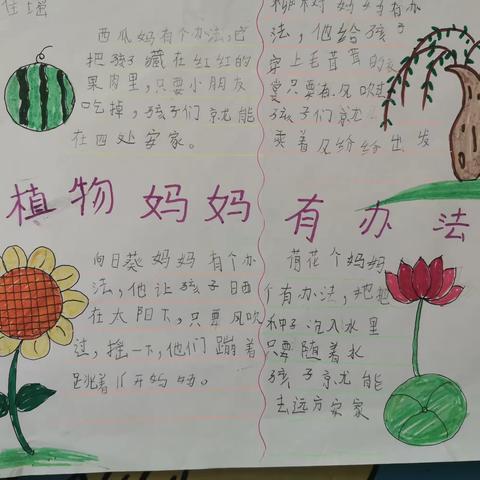 佳瑶
西瓜妈有个办法,它
把孩子藏在红红的
果肉里,只要小朋友
吃掉,孩子们就能
在四处安家。
柳树妈妈有办
法,他给孩子
穿上毛茸茸的
裳只要有风吹过
孩子们就
乘着风纷纷出发
植物妈妈有办法
向日葵妈妈有个办
法,他让孩子日晒
在太阳下,只要风吹
过,摇一下,他们蹦着
跳着离开妈妈。
荷花个妈妈
个有办法,她把
种子沉入水里
只要随着水
孩子就能
去远方安家